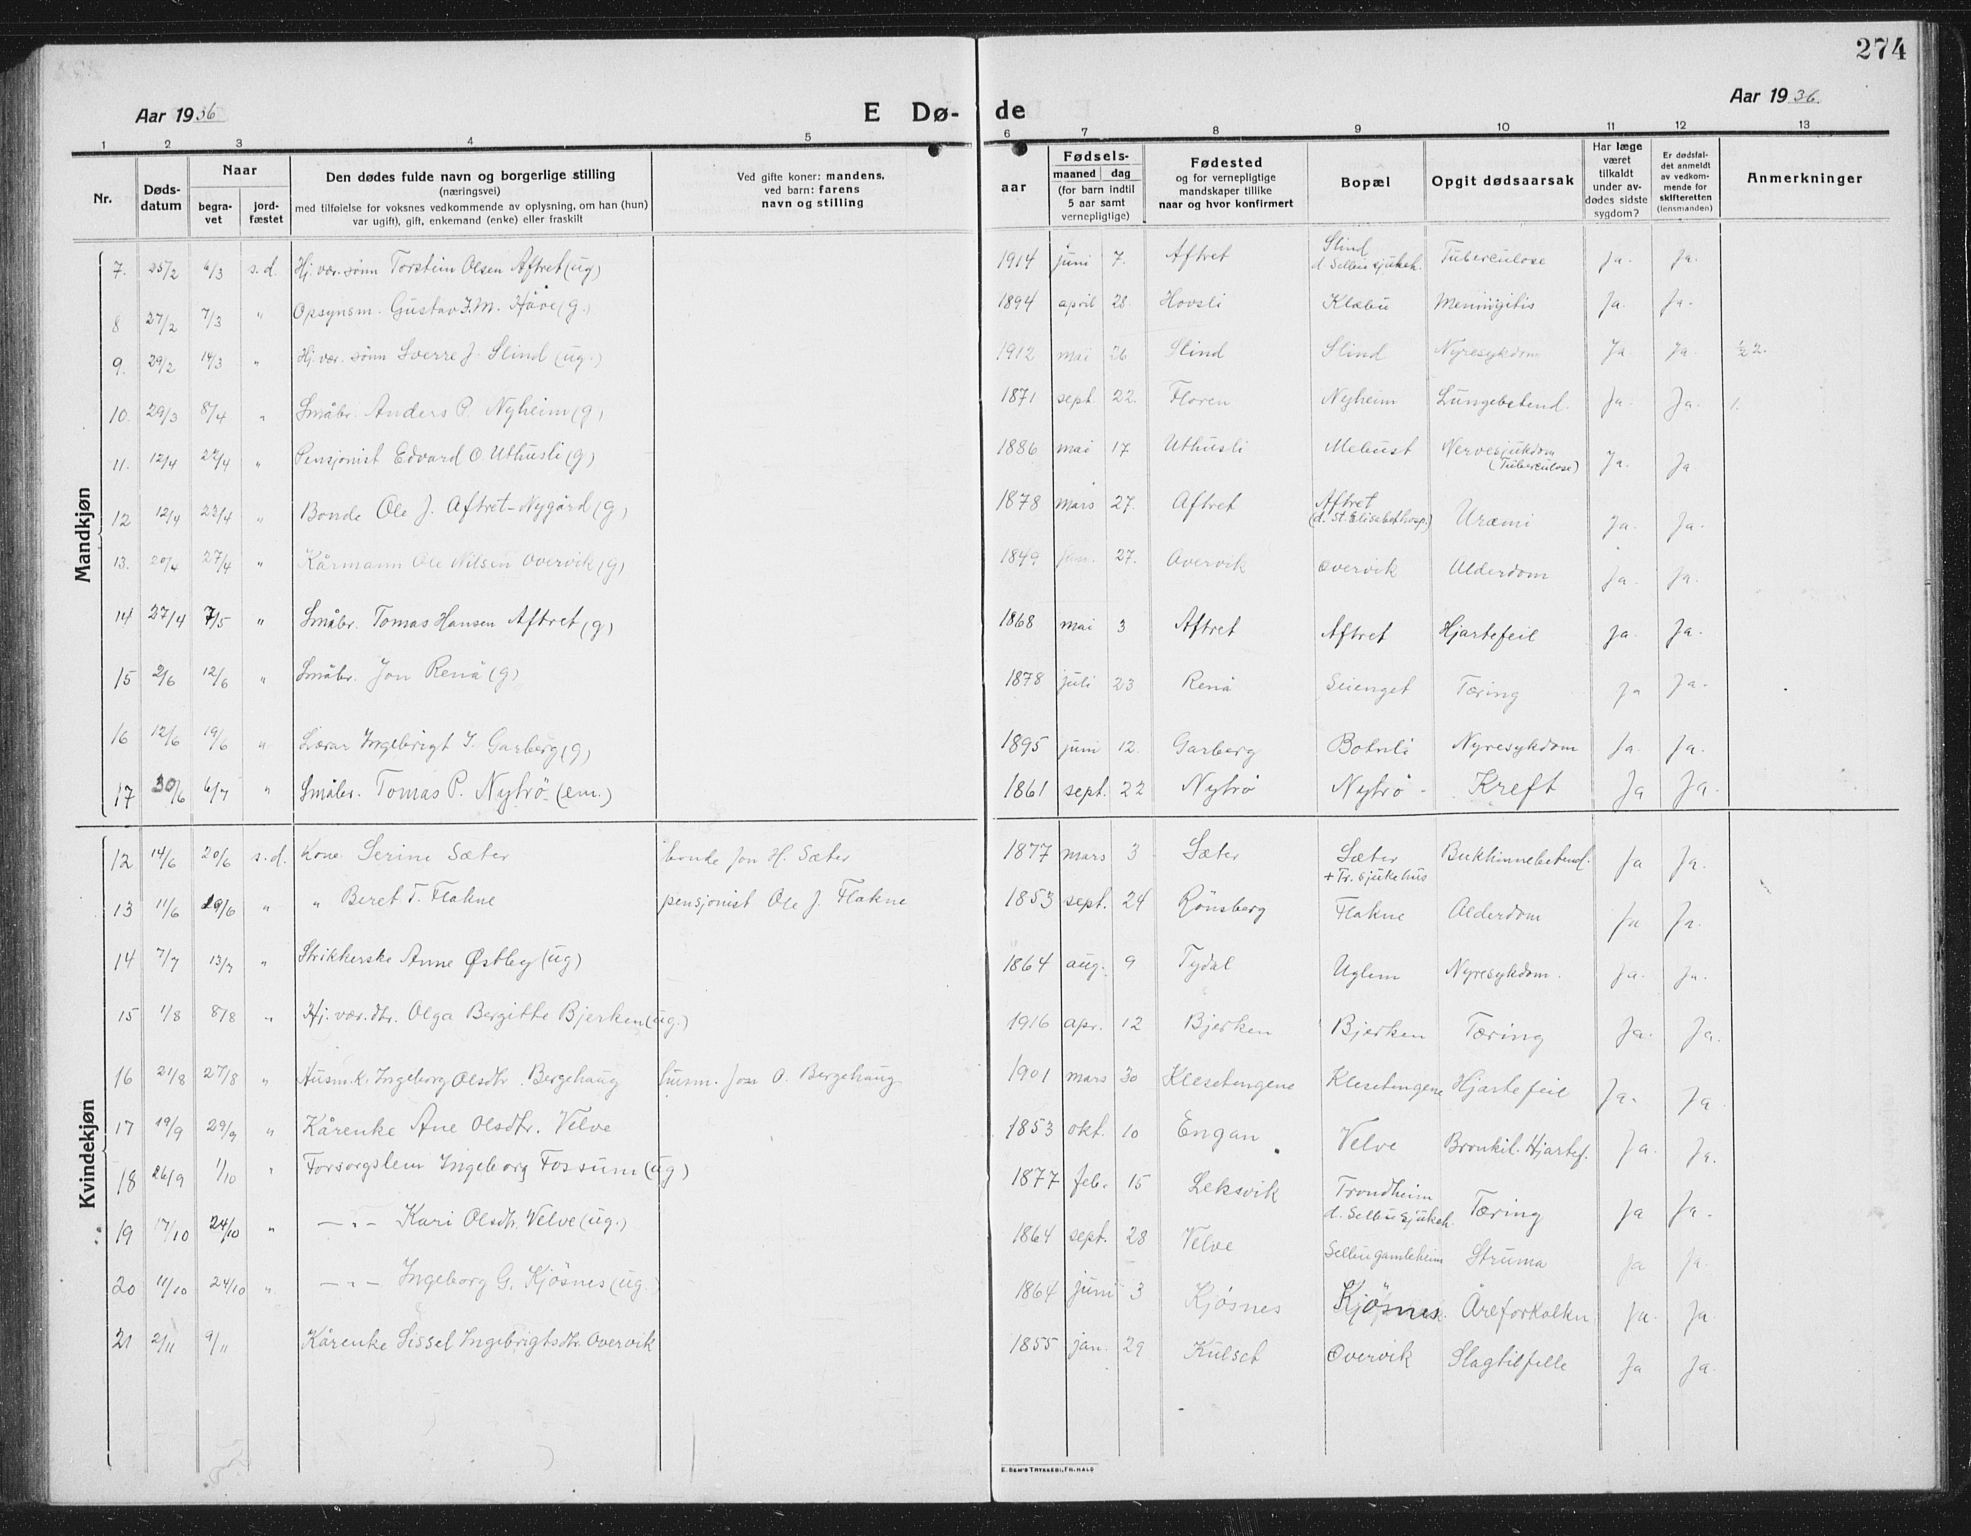 274
Aar 1936 E Dø- de Aar 1936.
1 2 3 4 5 6 7 8 9 10 11 12 13
Nr.
Døds-
datum
Naar
begra-
vet
jord-
fæstet
Den dødes fulde navn og borgerlige stilling
(næringsvei)
med tilføielse for voksnes vedkommende av oplysning, om han (hun)
var ugift), gift, enkemand (enke) eller fraskilt
Ved gifte koner: mandens,
ved barn: farens
navn og stilling
aar
Fødsels-
maaned dag
(for barn indtil
5 aar samt
vernepligtige)
Fødested
og for vernepligtige
mandskaper tillike
naar og hvor konfirmert
Bopæl
Opgit dødsaarsak
Har læge
været
tilkaldt
under av-
dødes sidste
sygdom?
Er dødsfal-
det anmeldt
av vedkom-
mende for
skifteretten
(lensmanden)
Anmerkninger
Mandkjøn
7. 25/2 6/3 s.d. Hj. vær. sønn Torstein Olsen Aftret (ug) 1914 juni 7. Aftret Slind d. Selbu sjukeh. Tuberculose Ja. Ja.
8 27/2 7/3 " Opsynsm. Gustav J.M. Håve (g.) 1894 april 28. Hovsli Klæbu Meningitis Ja. Ja.
9. 29/2 14/3 " Hj. vær. sønn Sverre J. Slind (ug.) 1912 mai 26 Slind Slind Nyresykdom Ja Ja. ½ 2.
10. 29/3 8/4 " Småbr. Anders P. Nyheim (g) 1871 sept. 22. Floren Nyheim Lungebetend. Ja. Ja. 1.
11. 12/4 22/4 " Pensjonist Edvard O. Uthusli (g) 1886 mai 17 Uthusli Mebust Nervesjukdom (Tuberculose) Ja. Ja
12 12/4 23/4 " Bonde Ole J. Aftret-Nygård (g) 1878 mars 27. Aftret Aftret (d. St. Elisabethosp.) Uræmi Ja. Ja.
13. 20/4 27/4 " Kårmann Ole Nilsen Overvik (g) 1849 jan. 27. Overvik Overvik Alderdom Ja. Ja.
14 27/4 7/5 " Småbr. Tomas Hansen Aftret (g) 1868 mai 3 Aftret Aftret Hjartefeil Ja. Ja.
15 2/6 12/6 " Småbr. Jon Renå (g) 1878 juli 23 Renå Seienget Tæring Ja Ja.
16 12/6 19/6 " Lærar Ingebrigt J. Garberg (g) 1895 juni 12. Garberg Botnli Nyresykdom Ja. Ja.
17 30/6 6/7 " Småbr. Tomas P. Nytrø (em.) 1861 sept. 22 Nytrø Nytrø Kreft Ja Ja.
Kvindekjøn
12 14/6 20/6 s.d. Kone Serine Sæter bonde Jon H. Sæter 1877 mars 3 Sæter Sæter + Tr. sjukehus Bukhinnebetend. Ja Ja.
13 11/6 20/6 " " Beret T. Flakne pensjonist Ole J. Flakne 1853 sept. 24 Rönsberg Flakne Alderdom Ja Ja.
14 7/7 13/7 " Strikkerske Anne Østby (ug) 1864 aug. 9 Tydal Uglem Nyresykdom. Ja. Ja.
15 1/8 8/8 " Hj. vær. dtr. Olga Bergitte Bjerken (ug.) 1916 apr. 12 Bjerken Bjerken Tæring Ja. Ja.
16 21/8 27/8 " Husm. k. Ingeborg Olsdtr. Bergehaug husm. Jon O. Bergehaug 1901 mars 30 Klesetengene Klesetengene Hjartefeil Ja. Ja.
17 19/9 29/9 " Kårenke Ane Olsdtr. Velve 1853 okt. 10 Engan Velve Bronkit. Hjartef. Ja. Ja.
18 26/9 1/10 " Forsorgslem Ingeborg Fossum (ug) 1877 feb. 15 Leksvik Trondheim d. Selbu Sjukeh. Tæring Ja Ja.
19 17/10 24/10 " — " — Kari Olsdtr. Velve (ug.) 1864 sept. 28 Velve Selbu gamleheim Struma Ja Ja.
20 11/10 24/10 " — " — Ingeborg G. Kjøsnes (ug.) 1864 juni 3 Kjøsnes Kjøsnes Åreforkalkn. Ja. Ja
21 2/11 9/11 Kårenke Sissel Ingebrigtsdtr. Overvik 1855 jan. 29 Kulset Overvik Slagtilfelle Ja Ja.
E. SEM'S TRYKKERI, FR.HALD